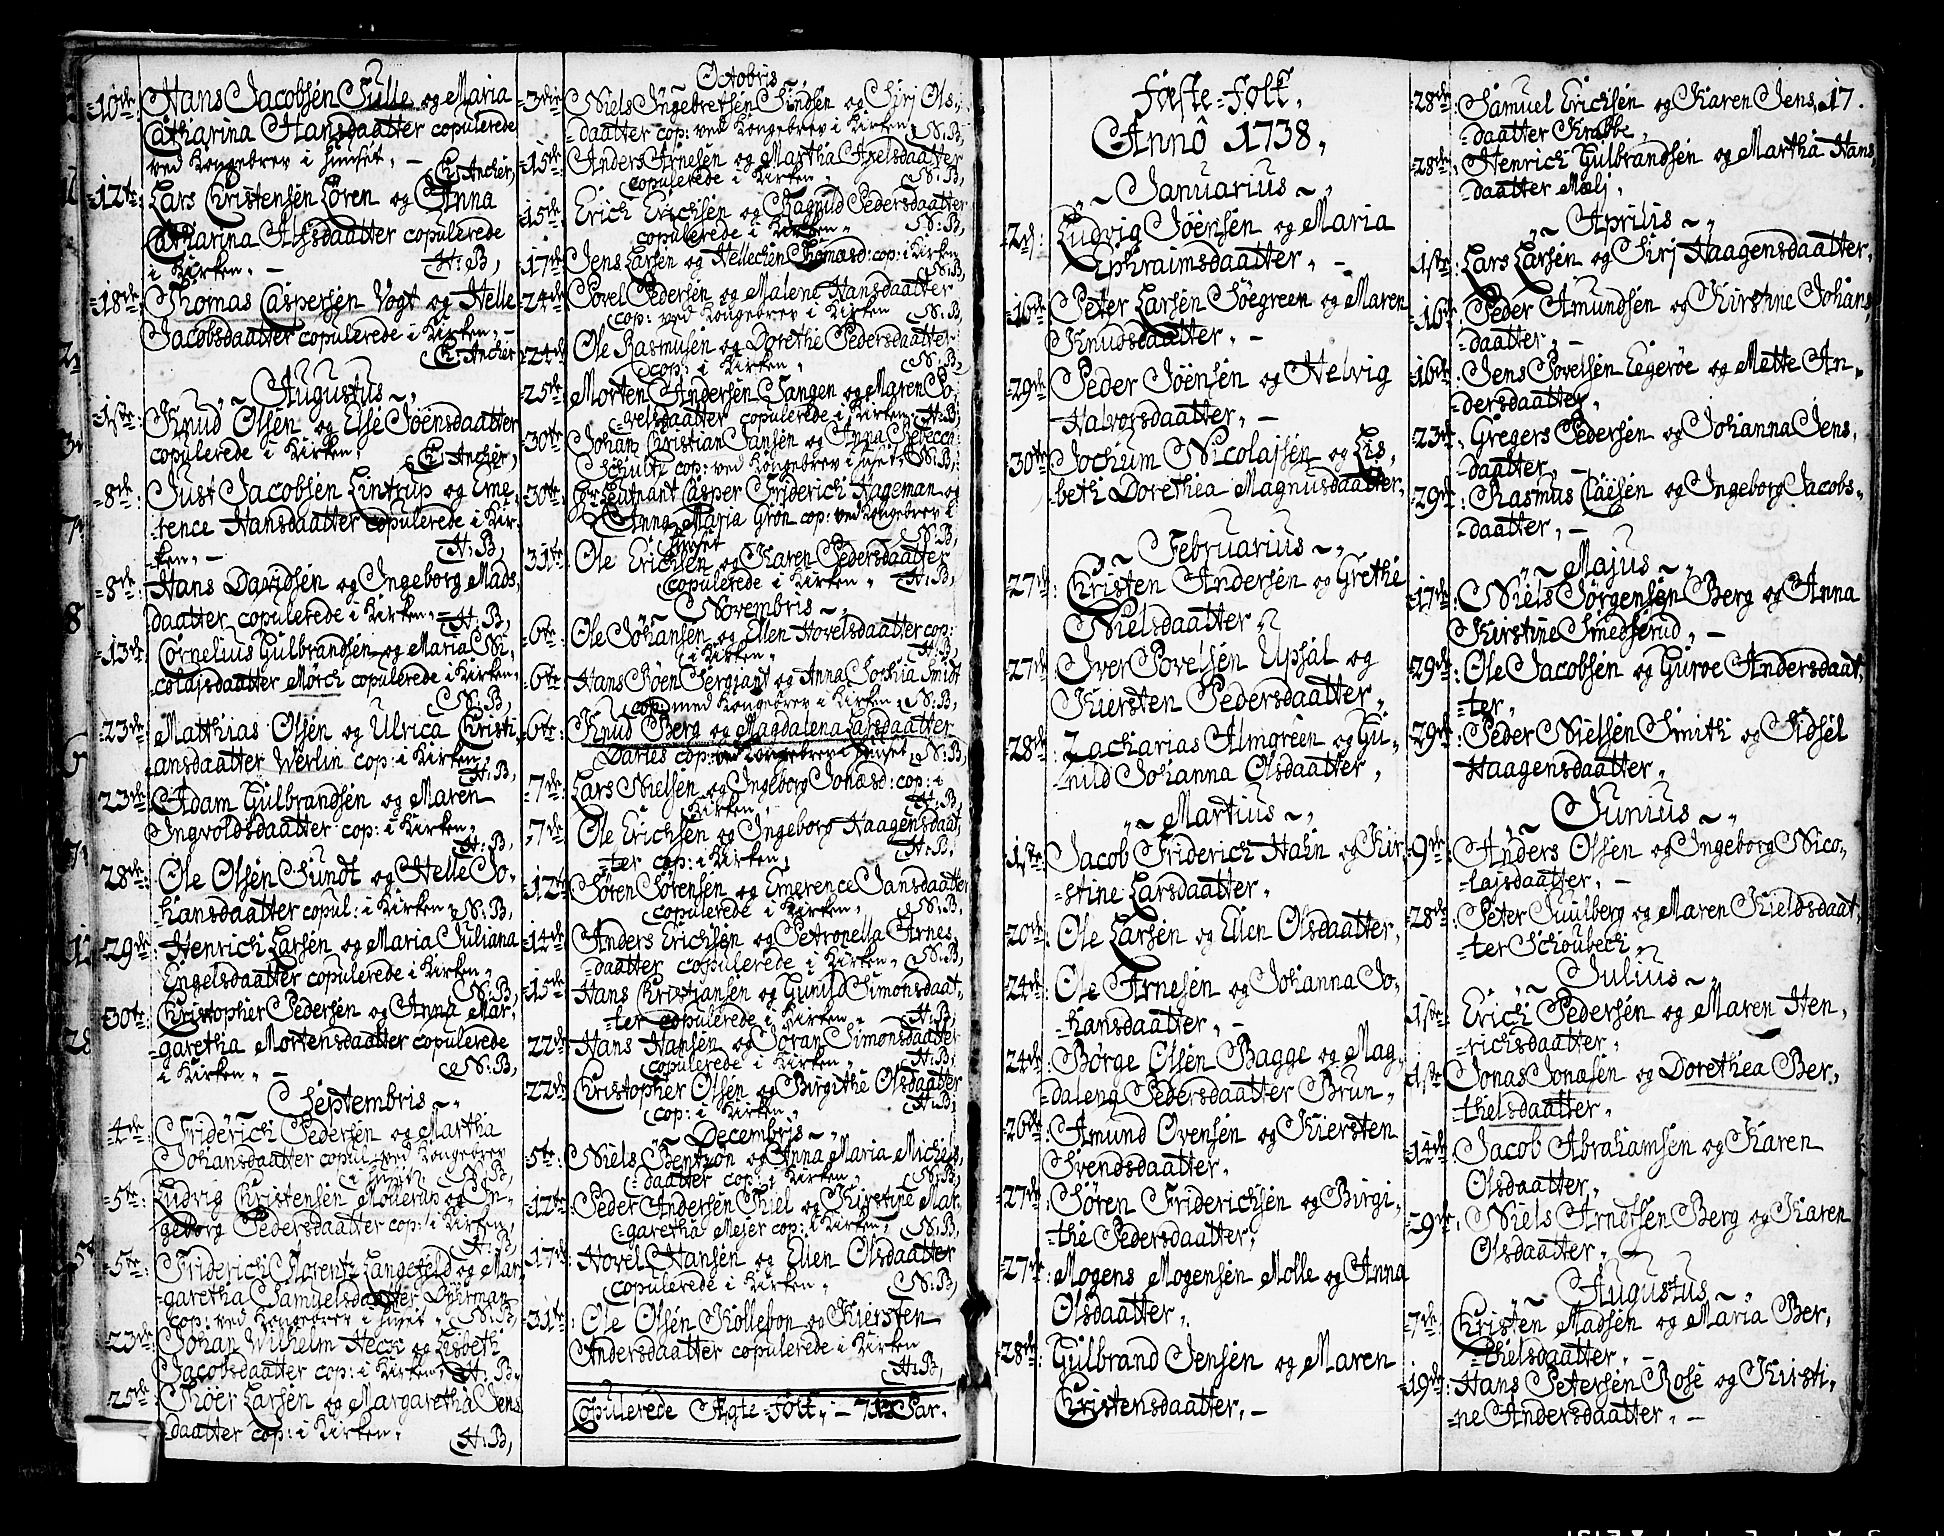 =10de Hans Jacobsen Fülle og Maria
Catharina Hansdaatter copulerede
ved Kongebrev i Huuset, - Ch: Ancher,
=12te: Lars Christensen Løren og Anna
Catharina Alfsdaatter copulerede
i Kirken. - H: B,
=18de: Thomas Caspersen Vogt og Helle
Jacobsdaatter copulerede i Kirken, -
Ch: Ancher
Augustus ~,
=1ste: Knud Olsen og Else Joensdaatter
copulerede i Kirken, Ch: Ancher,
=8de: Just Jacobsen Lintrup og Eme,
=rence Hansdaatter copulerede i Kir-
ken, - H: B,
=8de: Hans Davidsen og Ingeborg Mads,
daatter copulerede i Kirken, = H: B,
=13de: Cornelius Gulbrandsen og Maria Ni,
=colajsdaatter Mørch copulerede i Kirken,
N: B,
=23de Matthias Olsen og Ulrica Christi,
ansdaatter Werlin cop: i Kirken,
H: B,
23de Adam Gulbrandsen og Maren
Ingvoldsdaatter cop: i Kirken,
H: B,
28de: Ole Olsen Sundt og Helle Jo-
hansdaatter copul: i Kirken, N: B,
29de: Henrich Larsen og Maria Juliana
Engelsdaatter copulerede i Kirken,
N: B,
=30te: Christopher Pedersen og Anna Mar-
garetha Mortensdaatter copulerede
i Kirken, - N: B,
Septembris ~,
=4de Friderich Pedersen og Martha
Johansdaatter copul: ved Kongebrev
i Huuset N: B,
=5te: Ludvig Christensen Mollerup og In-
geborg Pedersdaatter cop: i Kirken,
H: B,
=5te: Friderich Florentz Langefeld og Mar
garetha Samuelsdaatter Duhrman
cop: ved Kongebrev i Huset, N: B,
=23de: Johan Wilhelm Hecci og Lisbeth
Jacobsdaatter cop: i Kirken, H: B,
=25de Thoer Larsen og Margaretha Jens
daatter cop: i Kirken, H: B,
Octobris
=3die: Niels Ingebretsen Findsen og Sirj Ols,
=daatter cop: ved Kongebrev i Kirken, N: B,
=15de: Anders Arnesen og Martha Axelsdaatter
copulerede i Kirken, N: B,
=15de Erich Erichsen og Ragnild Pedersdaatter
copulerede i Kirken, N: B,
=17de Jens Larsen og Hellechen Thomasd: cop: i Kirken
N: B,
=24de Povel Pedersen og Malene Hansdaatter
cop: ved Kongebrev i Kirken N: B,
=24de Ole Rasmusen og Dorethe Pedersdaatter
cop: i Kirken, N: B,
=25de Morten Andersen Tangen og Maren Po,
velsdaatter copulerede i Kirken, H: B,
=30te Johan Christian Jansen og Anna Rebecca
Schultz cop: ved Kongebrev i Huset, N: B,
=30te: Hr Leutnant Casper Friderich Hageman og
Anna Maria Grøn cop: ved Kongebrev i
Huuset N: B,
31te Ole Erichsen og Karen Pedersdaatter
copulerede i Kirken, H: B,
Novembris ~,
=6te: Ole Johansen og Ellen Hovelsdaatter cop:
i Kirken, H: B,
=6te: Hans Roen Sergiant og Anna Sophia Smidt
cop: med Kongebrev i Kirken, N: B,
=6te: Knud Berg og Magdalena Larsdaatter
Daries cop: ved Kongebrev i Huset, N: B,
=7de: Lars Nielsen og Ingeborg Jonasd: cop: i
Kirken, H: B,
,7de: Ole Erichsen og Ingeborg Haagensdaat,
=ter cop: i Kirken, H: B,
=12te Søren Sørensen og Emerence Jansdaatter
copulerede i Kirken, N: B,
=14de Anders Erichsen og Petronella Arnes,
=daatter copulerede i Kirken, N: B,
=15de Hans Christiansen og Gunild Simonsdaat,
=ter copulerede i Kirken, H: B,
22de Hans Hansen og Goran Simonsdaatter
copulerede i Kirken, H: B,
=22de Christopher Olsen og Birgithe Olsdaatter
cop: i Kirken, H: B,
Decembris ~,
=5te: Niels Bentzon og Anna Maria Michels,
daatter cop: i Kirken, N: B,
=12te: Peder Andersen Kiel og Kirstine Mar,
garetha Mejer cop: i Kirken, N: B,
=17de Hovel Hansen og Ellen Olsdaatter
copulerede i Kirken, N: B,
=31te: Ole Olsen Kollebon og Kiersten
Andersdaatter copulerede i Kirken
H: B,
Copulerede Ægte=Folk, - 71 Par.
Fæste=Folk,
Anno 1738,
Januarius ~,
=2d: Ludvig Joensen og Maria
Ephraimsdaatter, -
=16de Peter Larsen Søegreen og Maren
Knudsdaatter, -
=29de Peder Joensen og Helvig
Halvorsdaatter, -
30te Jochum Nicolajsen og Lis,
=beth Dorethea Magnusdaatter,
Februarius ~,
27de: Christen Andersen og Grethe
Nielsdaatter,
=27de Iver Povelsen Upsal og
Kiersten Pedersdaatter,
=28de: Zacharias Almgreen og Gu-
nild Johanna Olsdaatter,
Martius ~,
=1ste Jacob Friderich Hahn og Kir,
=stine Larsdaatter,
=20de: Ole Larsen og Ellen Olsdaatter,
=24de Ole Arnesen og Johanna Jo-
=hansdaatter, -
24de Børge Olsen Bagge og Mag,
dalena Pedersdaatter Brun,
=26de Amund Ovensen og Kiersten
Svendsdaatter,
=27de Søren Friderichsen og Birgi-
the Pedersdaatter,
=27de: Mogens Mogensen Molle og Anna
Olsdaatter,
=28de: Gulbrand Jensen og Maren
Christensdaatter, -
=28de: Samuel Erichsen og Karen Jens, 17.
=daatter Krabbe,
=28de: Henrich Gulbrandsen og Martha Hans,
daatter Mælj,
Aprilis ~,
1ste: Lars Larsen og Sirj Haagensdaatter,
=16de: Peder Amundsen og Kirstine Johans,
=daatter, -
=16de: Jens Povelsen Eegerøe og Mette An,
dersdaatter,
=23de: Gregers Pedersen og Johanna Jens,
=daatter, -
=29de: Rasmus Claesen og Ingeborg Jacobs-
=daatter, -
Majus ~,
=17de: Niels Jørgensen Berg og Anna
Kirstine Smedsrud, -
=29de: Ole Jacobsen og Guroe Andersdaat,
=ter,
=29de: Peder Nielsen Smith og Sidsel
Haagensdaatter,
Junius ~,
=9de: Anders Olsen og Ingeborg Nico-
=lajsdaatter, -
=28de: Peter Juulberg og Maren Kieldsdaat,
=ter Schoubech,
Julius ~,
1ste: Erich Pedersen og Maren Hen,
=richsdaatter,
=1ste Jonas Jonasen og Dorethea Ber,
=thelsdaatter,
=14de Jacob Abrahamsen og Karen
Olsdaatter,
=9de, Niels Arndtsen Berg og Karen
Olsdaatter,
Augustus ~,
=7de: Christen Madsen og Maria Ber,
=thelsdaatter, -
=19de: Hans Petersen Rose og Kirsti-
=ne Andersdaatter, -